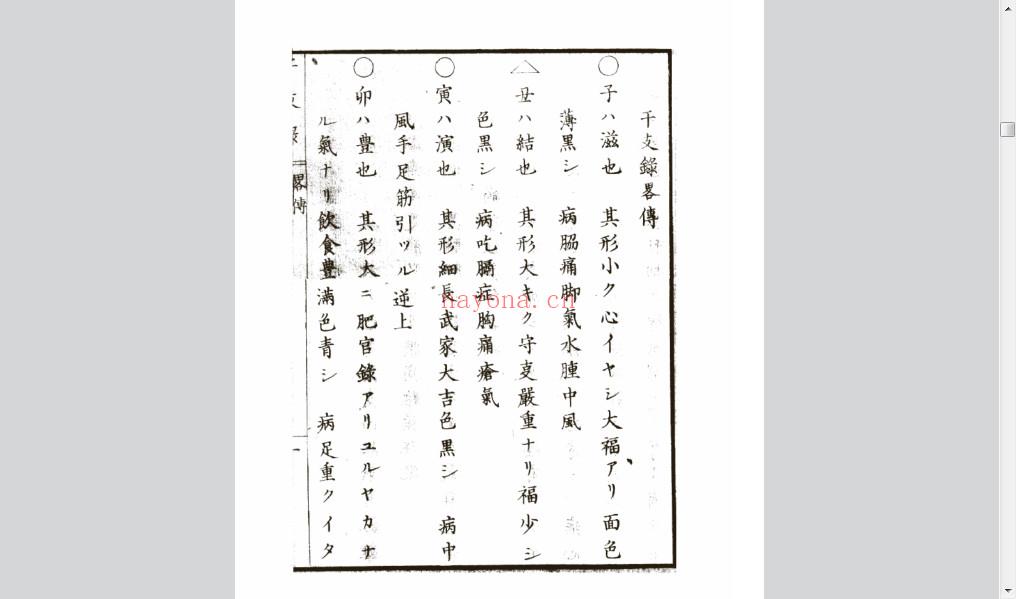 干支錄畧傳
○子ハ滋也　其形小ク心イヤシ大福アリ面色
薄黒シ　病脇痛脚氣水腫中風
△丑ハ結也　其形大キク守叓嚴重ナリ福少シ
色黒シ　病吃膈症胸痛瘡氣
○寅ハ演也　其形細長武家大吉色黒シ　病中
風手足筋引ツル逆上
○卯ハ豊也　其形大ニ肥官錄アリユルヤカナ
ル氣ナリ飲食豊満色青シ　病足重クイタ
干支録
畧傳
一
nayona.cn